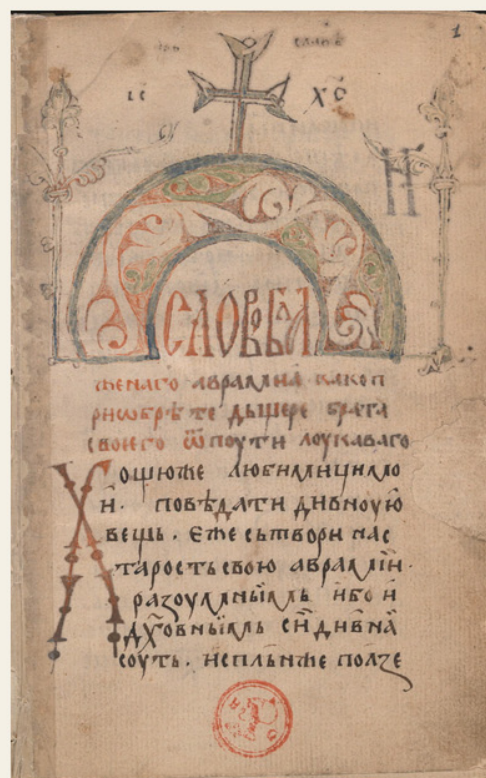 1
іс хс
слово бл
женаго авраамиа како п
риѡбрѣте дьщере брата
своего ѿ поути лоукаваго
Хощюже любимици мо
и · повѣдати дивноую
вещь. еже сьтвори нас
тарость свою авраамїи ·
разоумныимь ибо и
дх҃овныимь сїи дивна
соуть. испльнже ползе